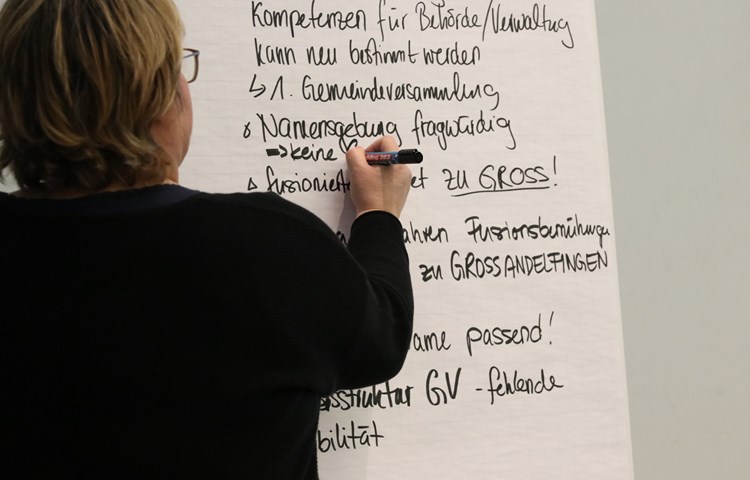 Kompetenzen für Behörde/Verwaltung
kann neu bestimmt werden
↳ 1. Gemeindeversammlung
Namensgebung fragwürdig
⇒ keine
fusionierte et ZU GROSS!
ahren Fusionsbemühungen
zu GROSSANDELFINGEN
ame passend!
sstruktur GV - fehlende
bilität